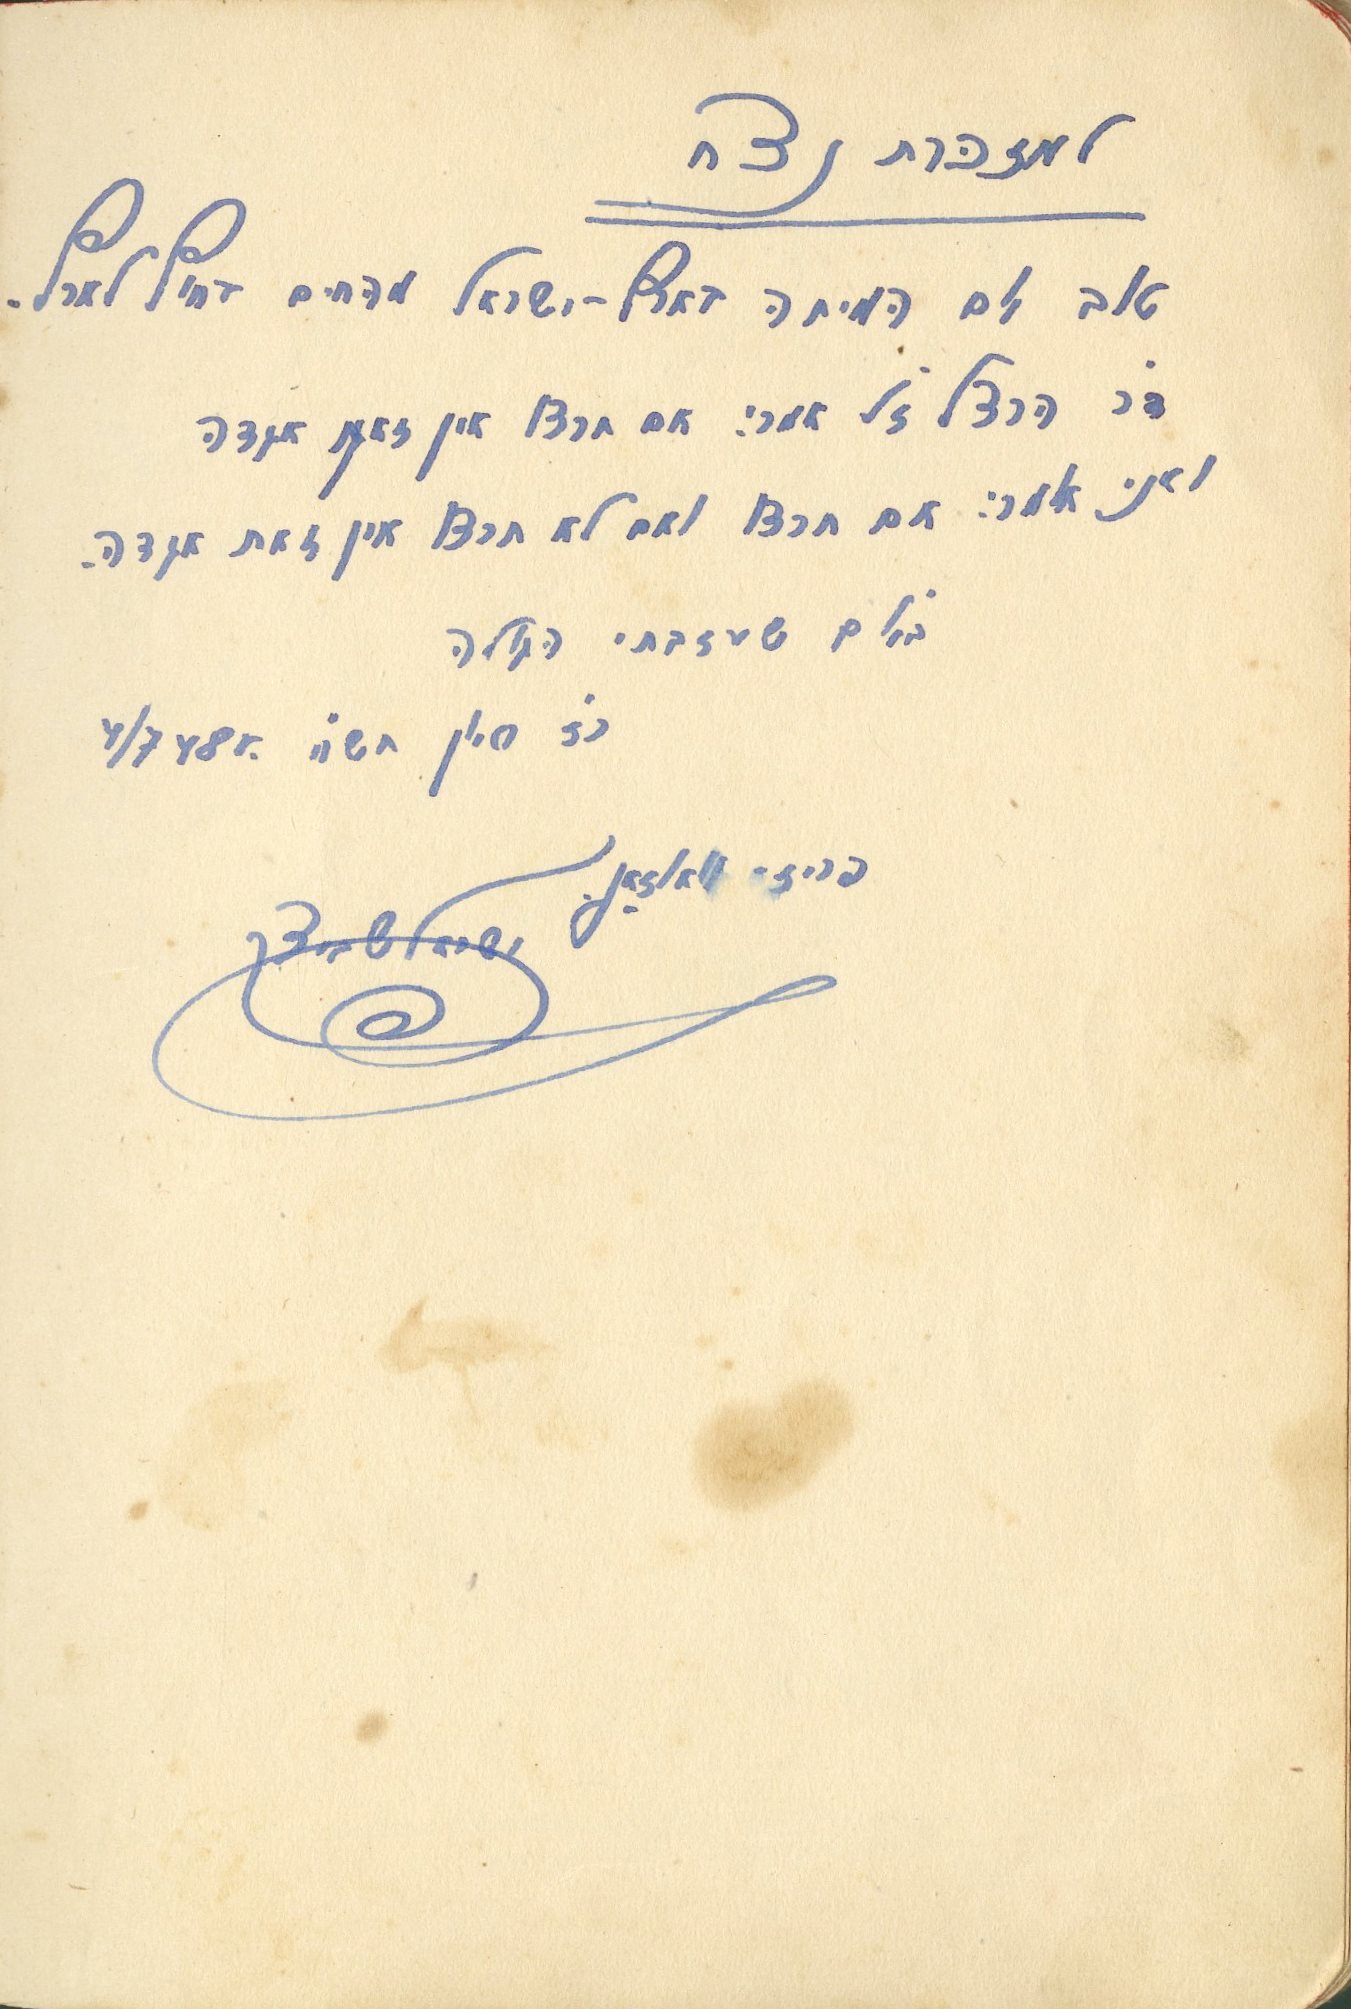 למזכרת נצח
טוב לום המיתה בארץ-ישראל מהחיים בחוץ לארץ.
ד"ר הרצל ז"ל אמר: אם תרצו אין זאת אגדה
ואני אומר: אם תרצו ואם לא תרצו אין זאת אגדה.
ביום שעזבתי הגולה
כ"ז סיון תש"ח 4/7 48.
ישראל